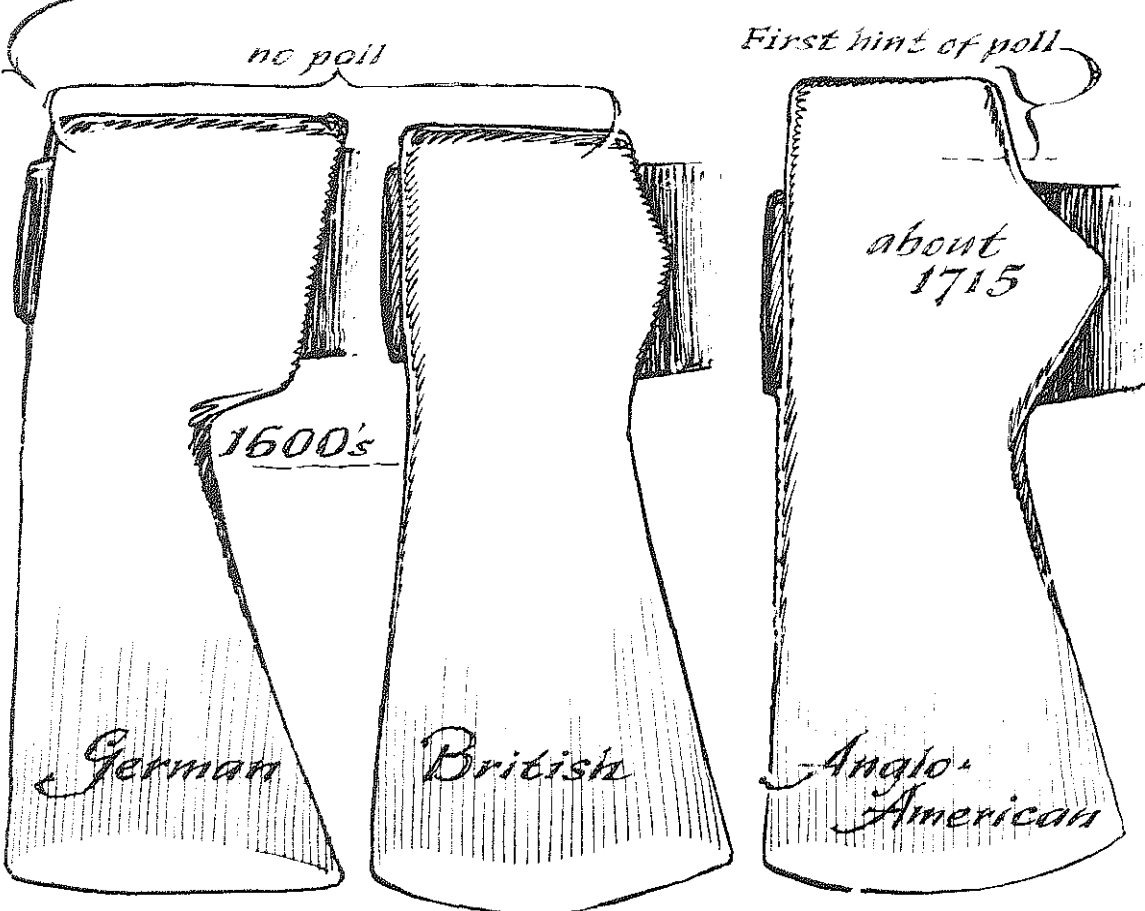 no poll
First hint of poll
about
1715
1600's
German
British
Anglo-
American